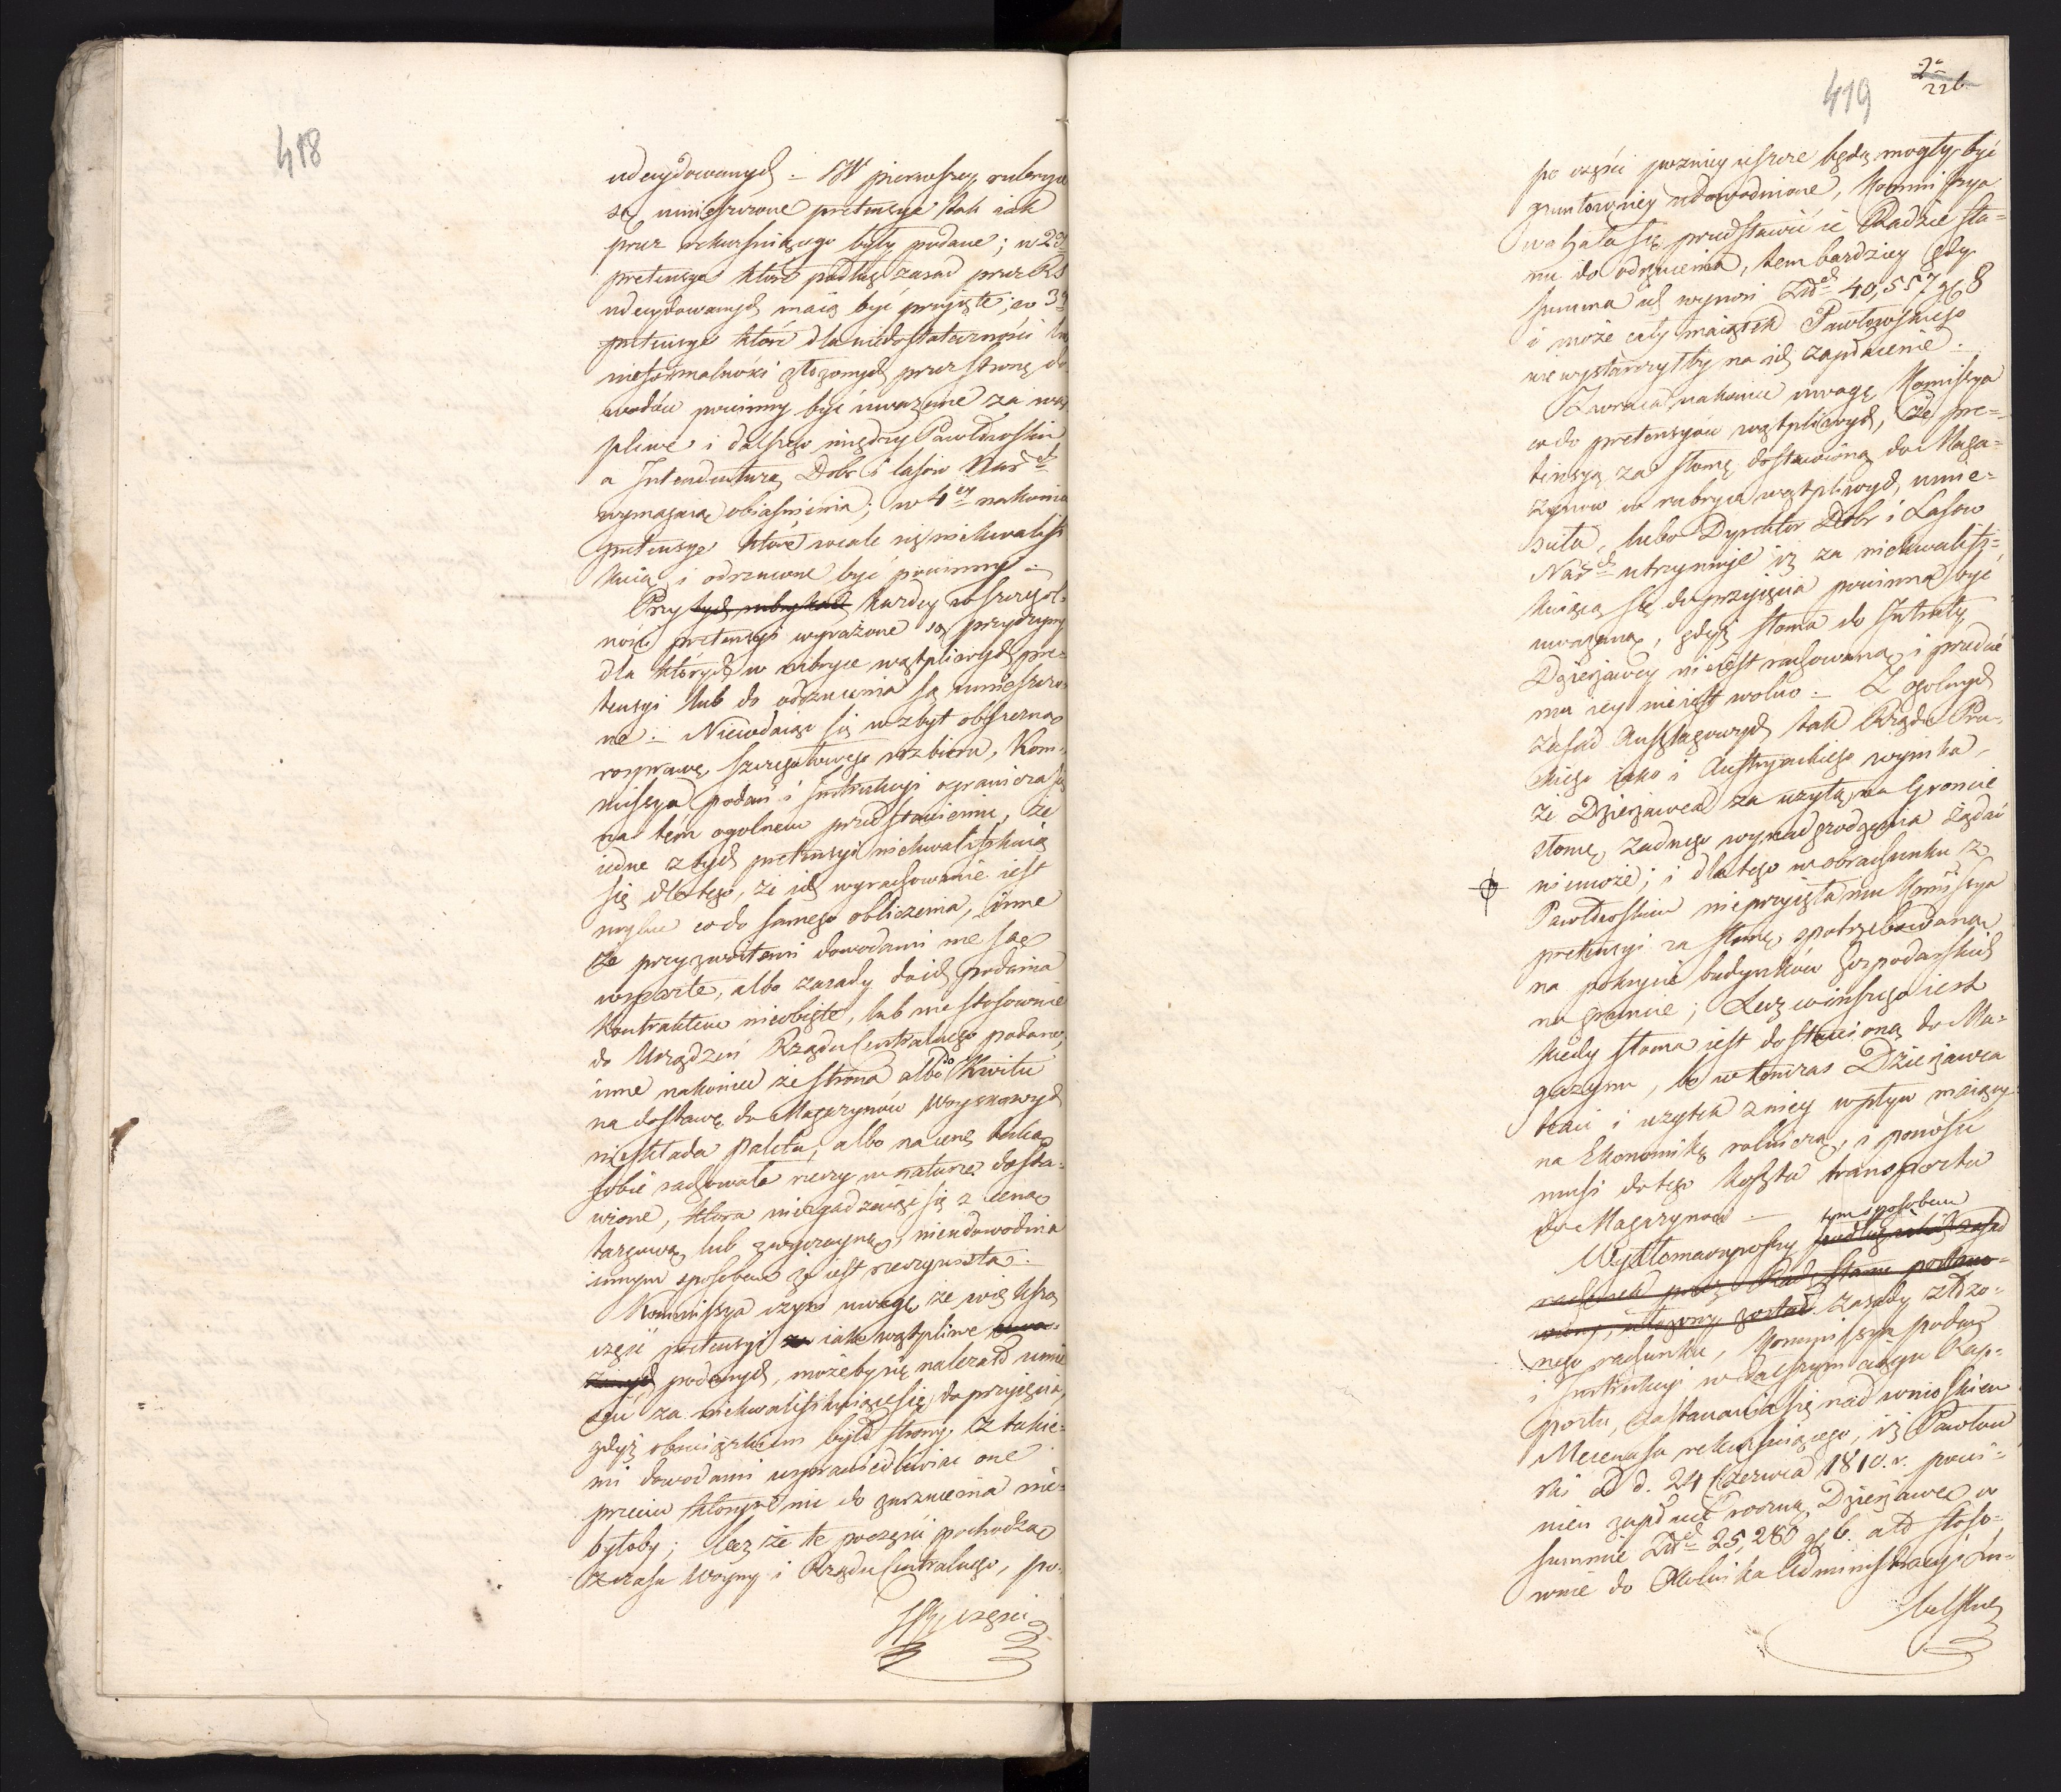 418
udecydowanych. – W pierwszey rubryce
są umieszczone pretensye tak iak
przez rekursuiącego były podane; w 2iey
pretensye które podług zasad przez RS
udecydowanych maią być przyięte; w 3ey
pretensye które dla niedostateczności lub
nieformalności złożonych przez stronę do-
wodów powinny być uważane za wąt
pliwe i dalszego między Pawłowskim
a Intendenturą Dobr i lasów Narod:
wymagaią obiaśnienia; w 4ey nakoniec
pretensye które wcale się niekwalifi
kuią i odrzucone być powinny. –
Przy tych rubrykach każdey w szczegól-
ności pretensyi wyrażone są przyczyny
dla których w rubryce wątpliwych pre-
tensyi lub do odrzucenia są umieszczo-
ne. – Niewdaiąc się w zbyt obszerną
rosprawę szczegółowego rozbioru, Kom-
missya podań i Instrukcyi ogranicza się
na tém ogolnem przedstawieniu, że
iedne z tych pretensyi niekwalifikuią
się dla tego, że ich wyrachowanie iest
mylne co do samego obliczenia, inne
że przyzwoitemi dowodami nie są
wsparte, albo zasady do ich podania
Kontraktem nieobięte, lub niestosownie
do Urządzeń Rządu Centralnego podane,
inne nakoniec że strona albo do Kwitu
na dostawę do Magazynów Woyskowych
nieskłada Paletu, albo na cenę taką
sobie rachowała rzeczy w naturze dosta-
wione, która niezgadzaiąc się z ceną
targową lub zwyczayną, nieudowodnia
innym sposobem że iest rzeczywista. –
Kommissya czyni uwagę że większa
część pretensyi za iako wątpliwe uwa-
żanych podanych, możeby się należało umie
ścić za niekwalifikuiące się do przyięcia,
gdyż obowiązkiem było strony z takie-
mi dowodami usprawiedliwiać one
przeciw którym nic do zarzucenia nie-
byłoby; lecz że te poczęści pochodzą
z czasu Woyny i Rządu Centralnego, po-
części
419
226
po części poźniey ieszcze będą mogły być
gruntowniey udowodnione, Kommissya
wahała się przedstawić ie Radzie Sta-
nu do odrzucenia, tem bardziey gdy
summa ich wynosi Złd 40,557 gr 8
i może cały maiątek Pawłowskiego
niewystarczyłby na ich zapłacenie. –
Zwraca nakoniec uwagę Kommissya
co do pretensyów wątpliwych, że pre-
tensyą za słomę dostawioną do Maga-
zynów w rubryce wątpliwych umie-
ściła, lubo Dyrektor Dobr i Lasów
Nard: utrzymuje iż za niekwalifi-
kuiącą się do przyięcia powinna być
uważana, gdyż słoma do Intraty
Dzierżawcy nieiest rachowana i przedać
mu iey nieiest wolno. – Z ogolnych
zasad Anszlagowych tak Rządu Pru-
skiego iako i Austryackiego wynika,
że Dzierżawca za użytą na Gruncie
słomę, żadnego wynadgrodzenia żądać
niemoże; i dla tego w obrachunku z
Pawłowskim nieprzyięła mu Kommissya
pretensyi za słomę spotrzebowaną
na pokrycie budynków gospodarskich
na gruncie; Lecz co inszego iest
kiedy słoma iest dostawioną do Ma-
gazynu, bo w tenczas Dzierżawca
traci i użytek z niey wpływ maiący
na Ekonomikę rolniczą, i ponosić
musi do tego koszta transportu
do Magazynów. –
Wytłomaczywszy tym sposobem podług iakich zasad
rachunek przez Radę Stanu postano-
wiony, ułożony został zasady złożo-
nego rachunku, Kommissya podań
i Instrukcyi w dalszym ciągu Rap-
portu, zastanawia się nad wnioskiem
Mecenasa rekursuiącego, iż Pawłow
ski od d. 24 Czerwca 1810. r. powi-
nien zapłacić roczną Dzierżawę w
summie Złd 25,280 gr 6. a to stoso-
wnie do Okolnika Administracyi Lu-
belskiey